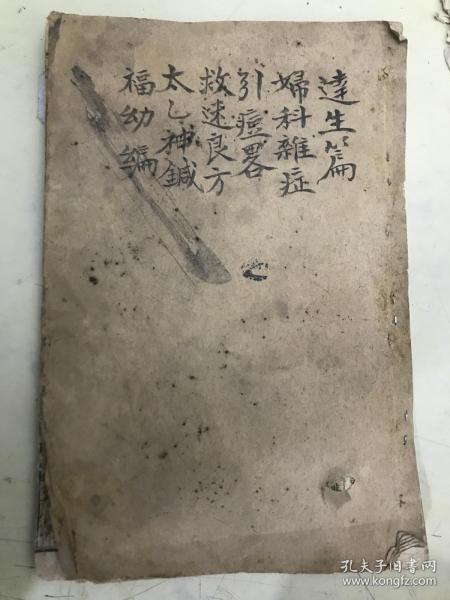 達生篇
婦科雜症
引痘畧
救迷良方
太乙神鍼
福幼編
孔夫子旧书网
www.kongfz.com